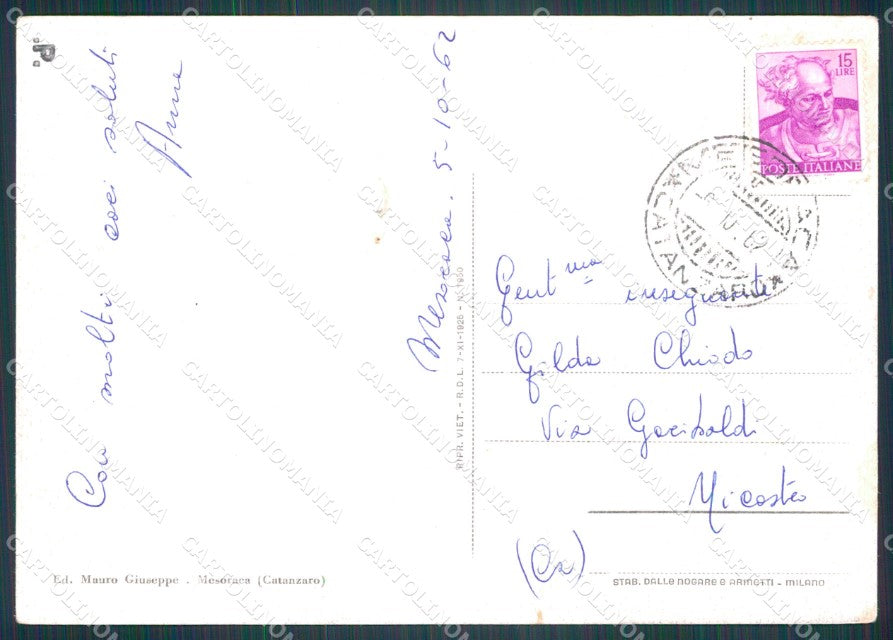 Con molti cari saluti
Anna
Mesoraca. 5-10-62
RIPR. VIET. - R.D.L. 7-XI-1926 - N. 1950
15
LIRE
POSTE ITALIANE
Gent.ma insegnante
Gilda Chiodo
Via Garibaldi
(Cz)
Ed. Mauro Giuseppe - Mesoraca (Catanzaro)
STAB. DALLE NOGARE E ARMETTI - MILANO
CARTOLINOMANIA